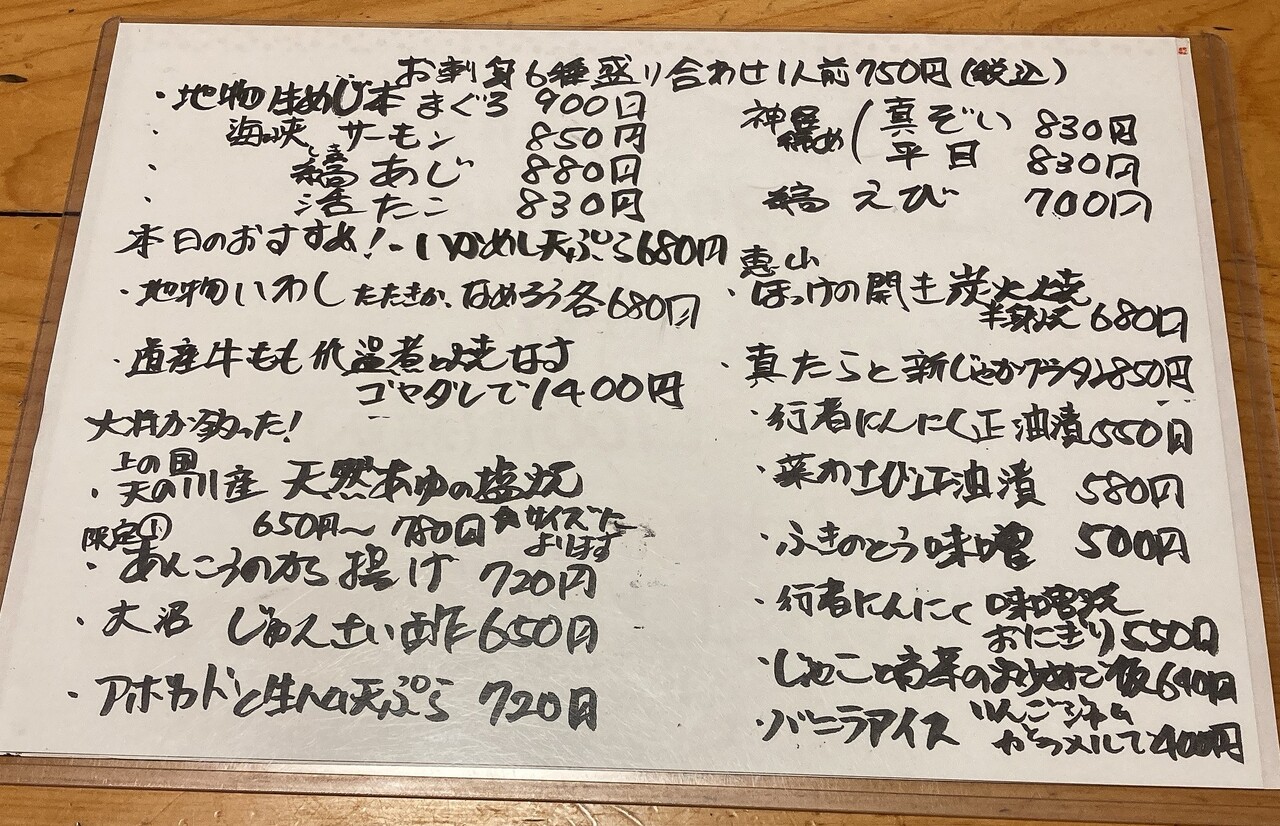 お刺身6種盛り合わせ1人前750円(税込)
・地物生めじ本まぐろ 900円
海峡サーモン 850円
・縞あじ 880円
・活たこ 830円
神経締め(真ぞい 830円
平目 830円
縞えび 700円
本日のおすすめ!-いかめし天ぷら680円
・地物いわしたたきか、なめろう各680円
・道産牛もも低温煮と焼なす
ゴマダレで1400円
大将が釣った!
上の国
・天の川産 天然あゆの塩焼
限定 650円〜780円 サイズに
よります
・あんこうのから揚げ 720円
・大沼 じゅんさい酢 650円
・アボカドと生ハム天ぷら 720円
恵山
・ほっけの開き炭火焼
半身 680円
・真たらと新じゃがグラタン850円
・行者にんにく正油漬550円
・葉わさび正油漬 580円
・ふきのとう味噌 500円
・行者にんにく味噌焼
おにぎり550円
・じゃこと高菜のまぜめご飯640円
・バニラアイス りんごジャム
400円